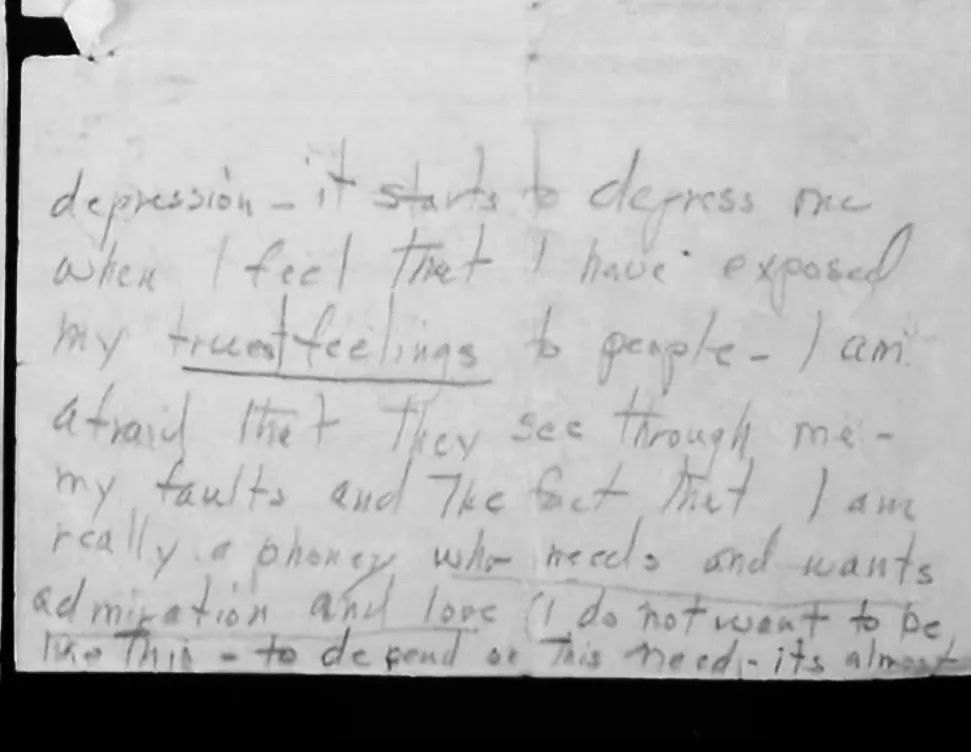 depression - it starts to depress me
when I feel that I have exposed
my truest feelings to people - I am
afraid that they see through me -
my faults and the fact that I am
really a phoney who needs and wants
admiration and love (I do not want to be
like this - to depend on this need - its almost